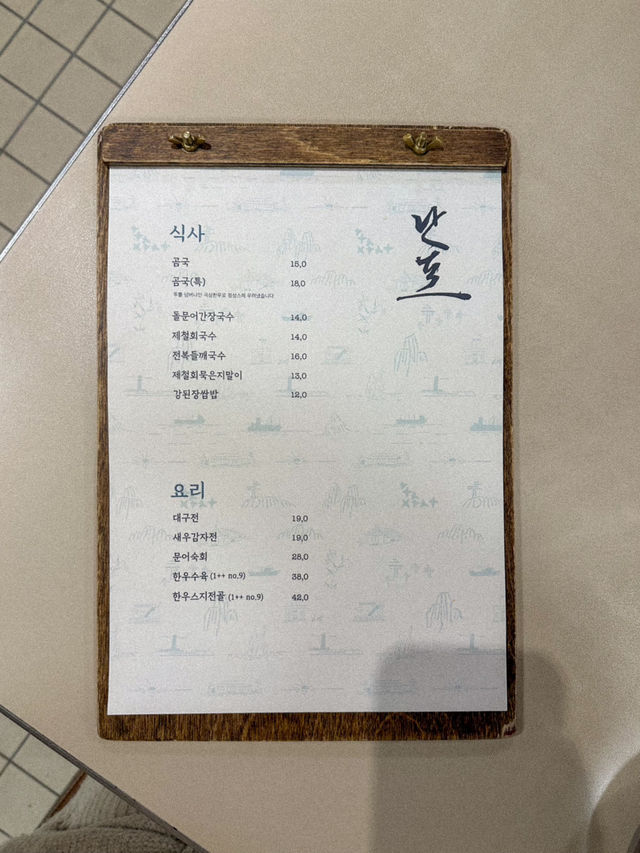 반
호
식사
곰국 15,0
곰국(특) 18,0
돌문어간장국수 14,0
제철회국수 14,0
전복들깨국수 16,0
제철회묵은지말이 13,0
강된장쌈밥 12,0
요리
대구전 19,0
새우감자전 19,0
문어숙회 28,0
한우수육 (1++ no.9) 38,0
한우스지전골 (1++ no.9) 42,0